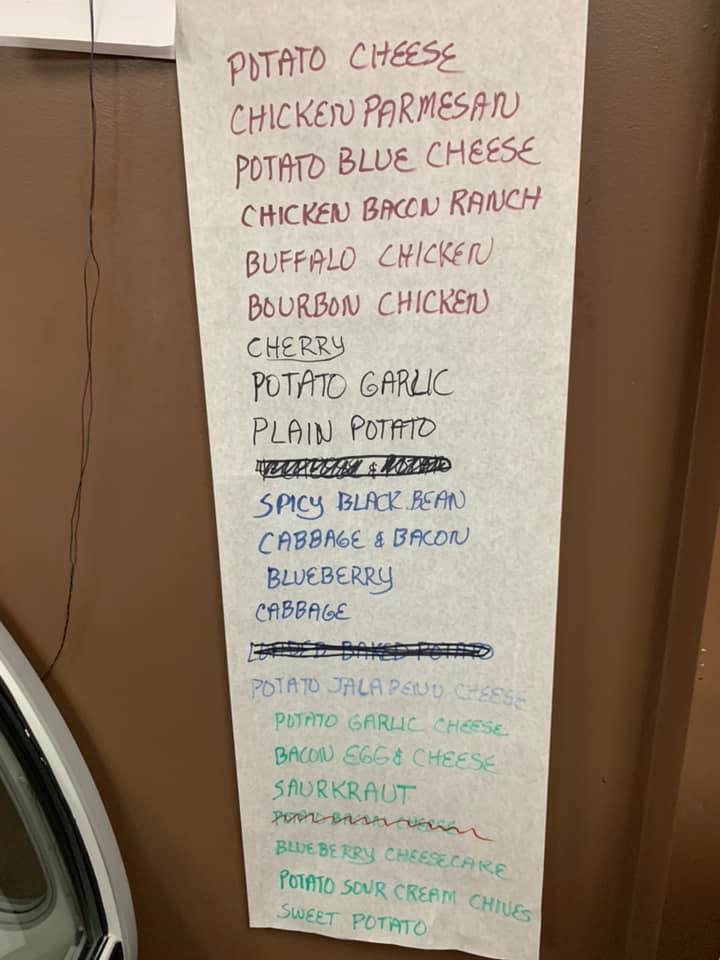 POTATO CHEESE
CHICKEN PARMESAN
POTATO BLUE CHEESE
CHICKEN BACON RANCH
BUFFALO CHICKEN
BOURBON CHICKEN
CHERRY
POTATO GARLIC
PLAIN POTATO
&
SPICY BLACK BEAN
CABBAGE & BACON
BLUEBERRY
CABBAGE
LOADED BAKED POTATO
POTATO JALAPENO CHEESE
POTATO GARLIC CHEESE
BACON EGG & CHEESE
SAURKRAUT
BLUEBERRY CHEESECAKE
POTATO SOUR CREAM CHIVES
SWEET POTATO